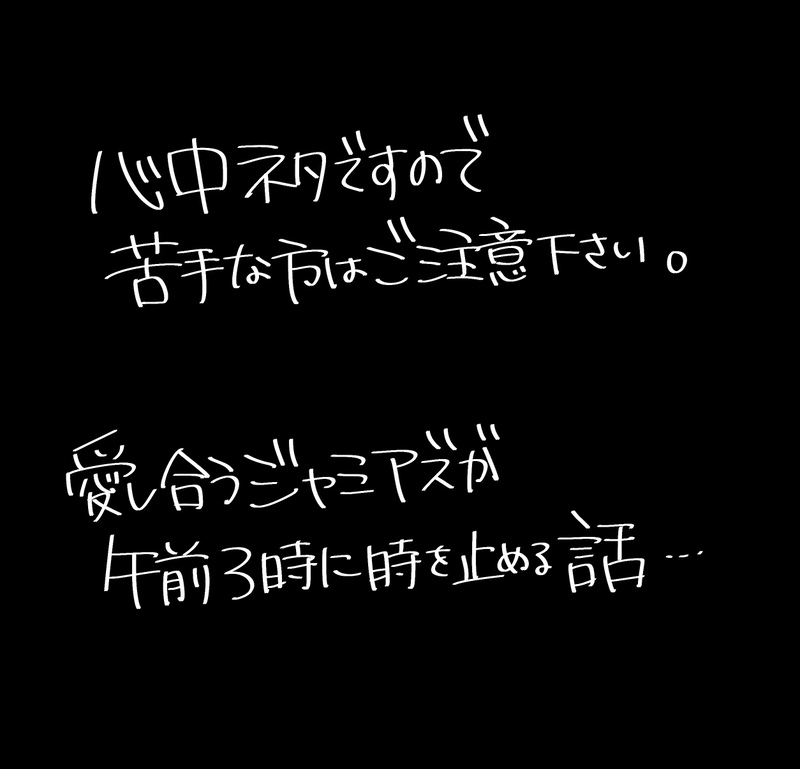 心中ネタですので
苦手な方はご注意下さい。
愛し合うジャミアズが
午前3時に時を止める話…